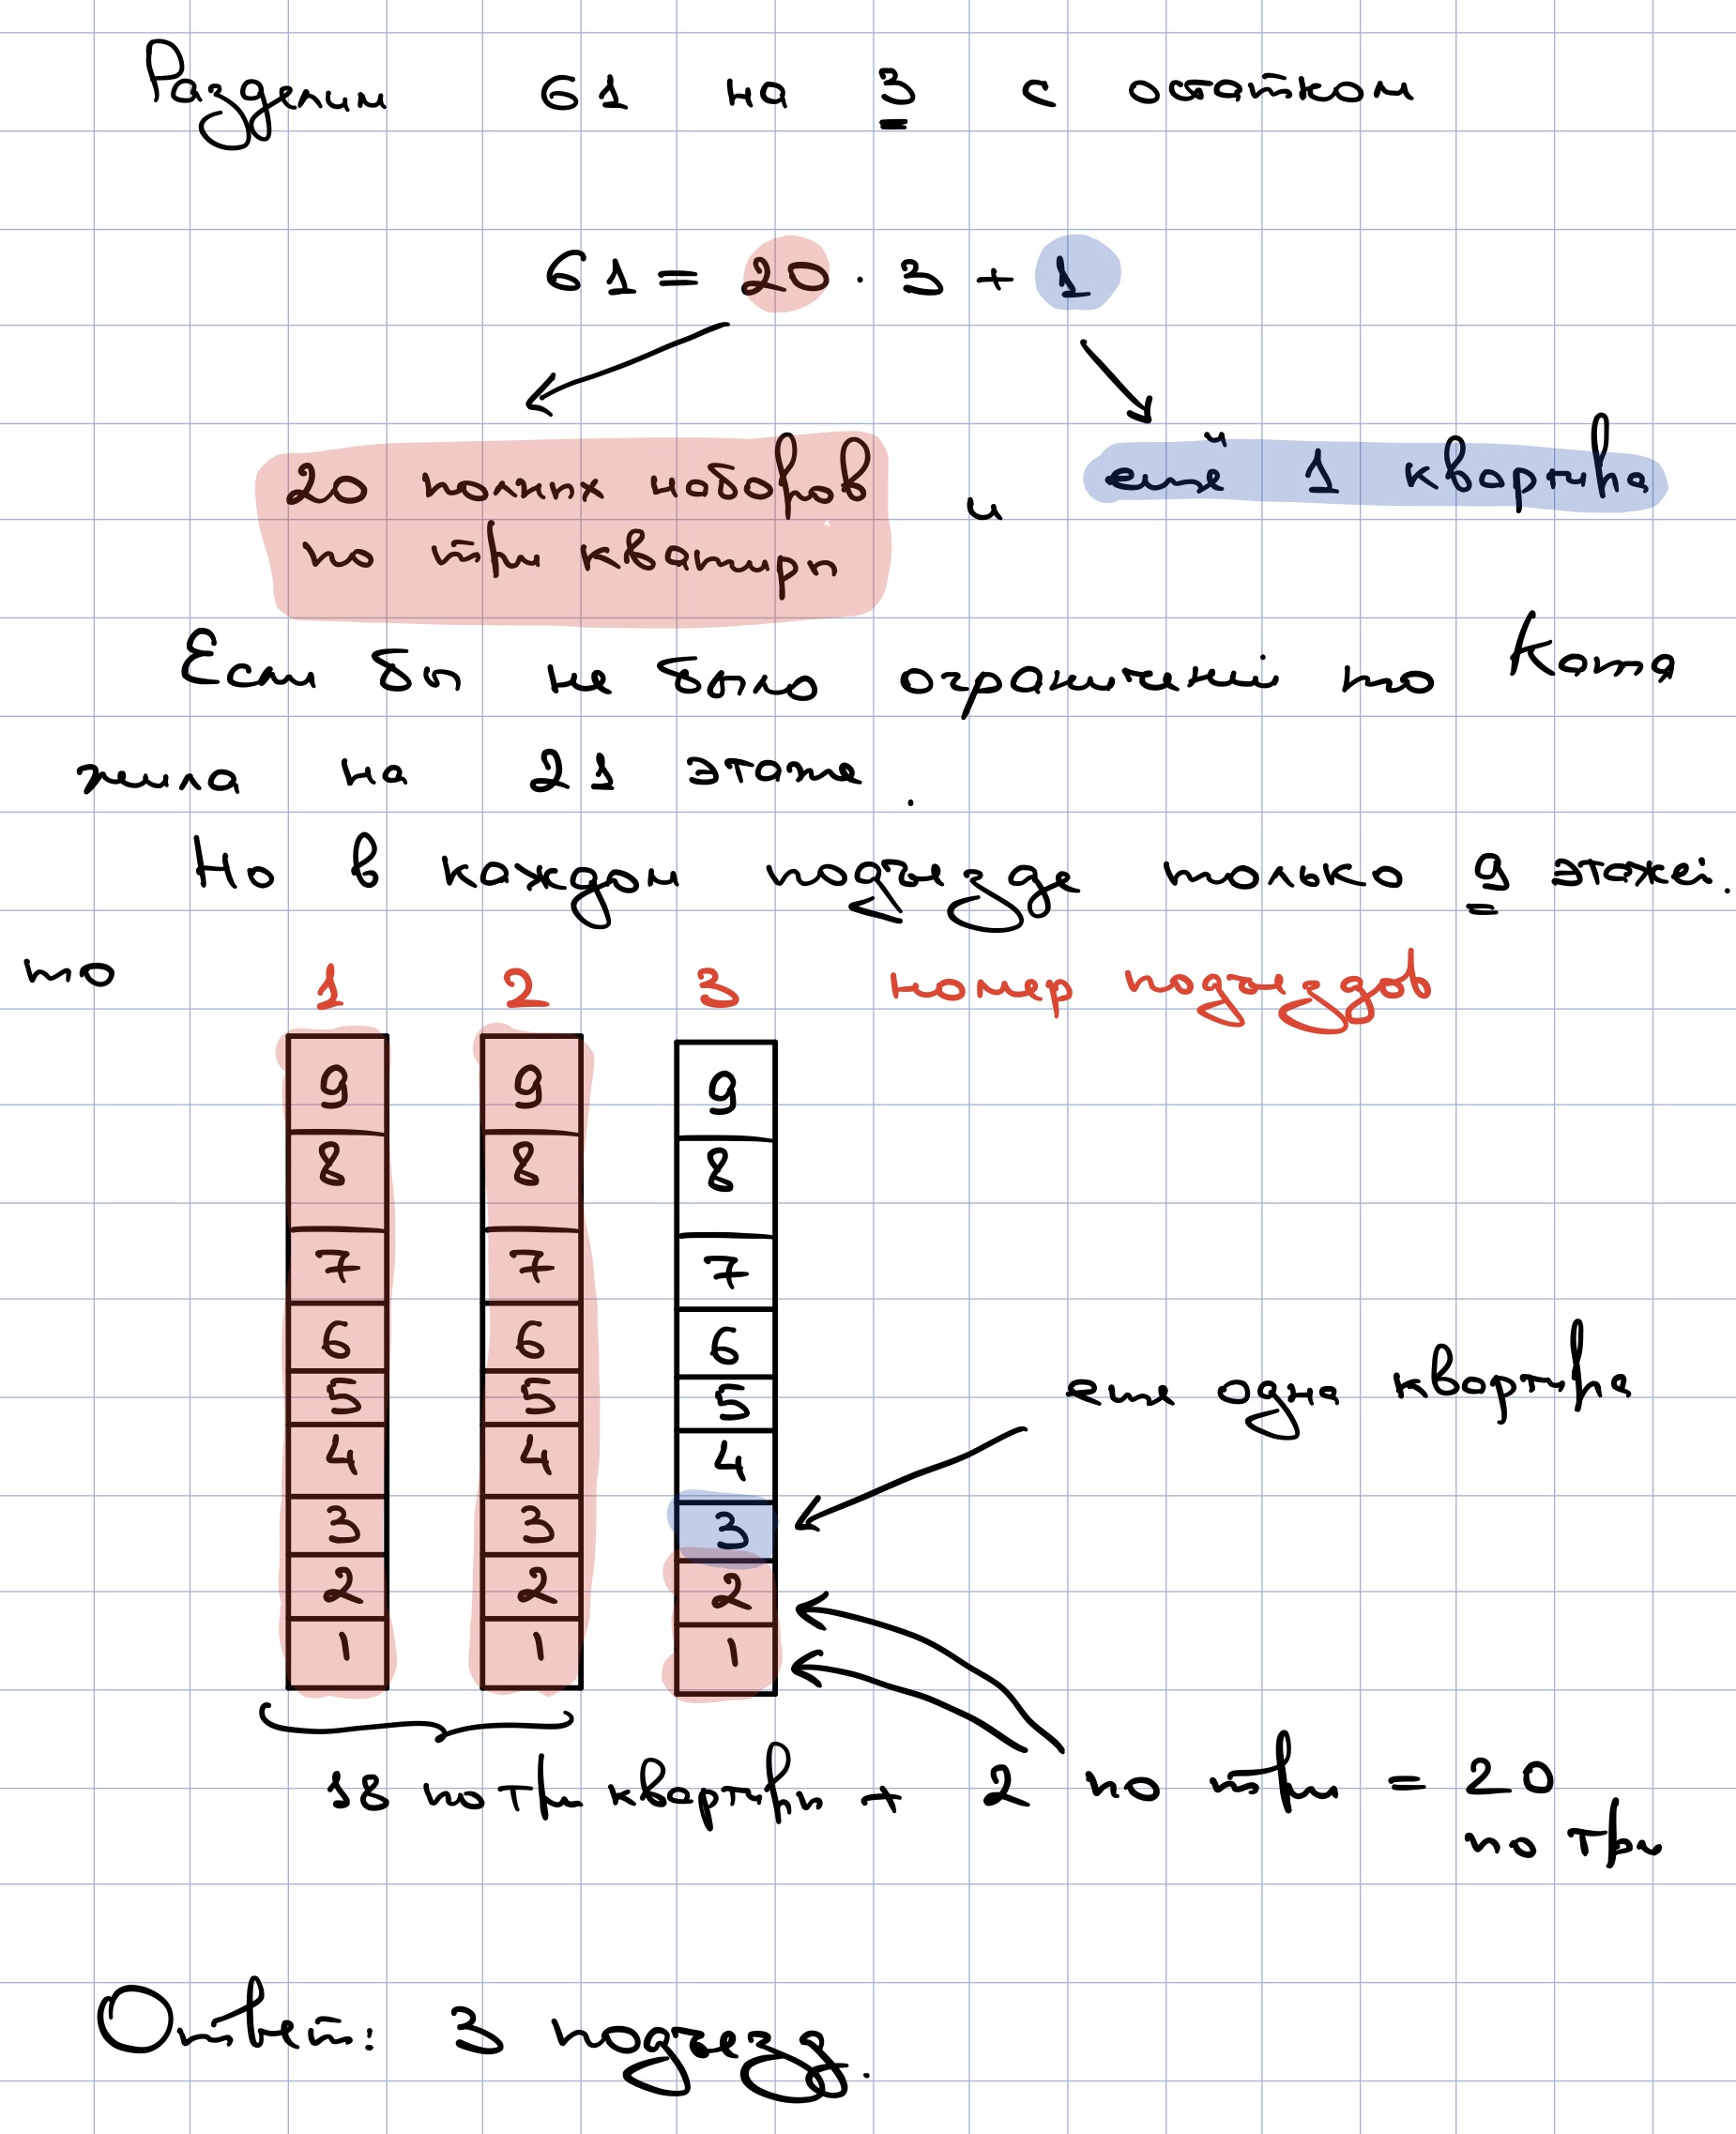 Разделим 61 на 3 с остатком
61 = 20 · 3 + 1
20 полных наборов по три квартиры
и
ещё 1 квартира
Если бы не было ограничений то Катя
жила на 21 этаже.
Но в каждом подъезде только 9 этажей.
то 1 2 3 номер подъездов
9 9 9
8 8 8
7 7 7
6 6 6
5 5 5
еще одна квартира
4 4 4
3 3 3
2 2 2
1 1 1
18 по три квартиры + 2 по три = 20
по три
Ответ: 3 подъезд.